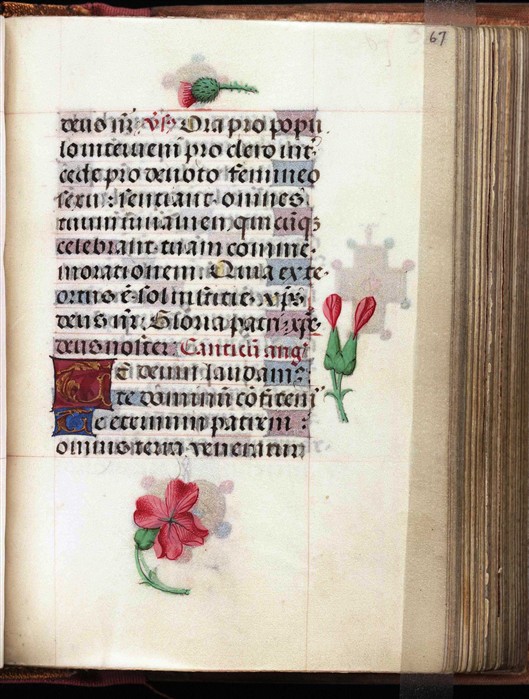 67
deus nr̄. vs̄. Ora pro popu
lo interueni pro clero int̄
cede pro deuoto femineo
sexu: sentiant omnes
tuum iuuamen, quicūqꝫ
celebrant tuam comme
moratione᷒. Quia ex te.
ortus ē sol iusticie xp̄s
deus nr̄. Gloria patri: xp̄e.
deus noster: Canticū anḡ
Te deum laudam᷒:
te dominū cōfitem᷒
Te eternum patrem:
omnis terra veneratur